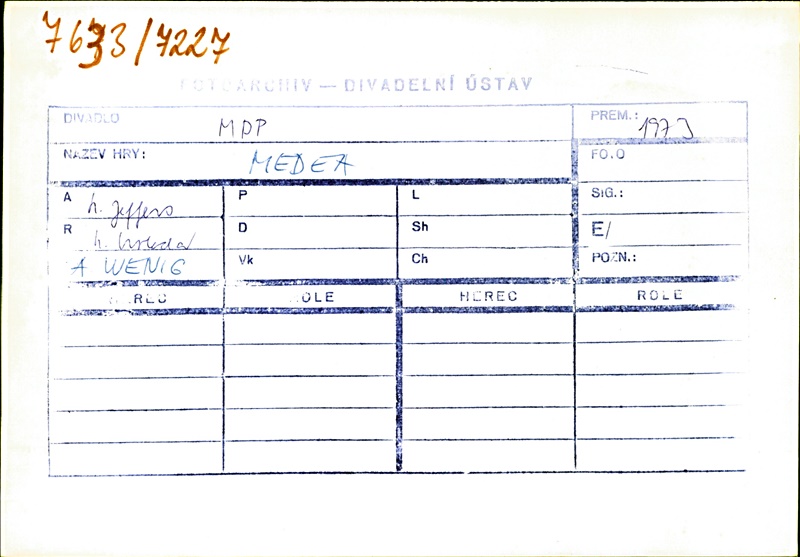 7633/7227
FOTOARCHIV — DIVADELNÍ ÚSTAV
DIVADLO MDP PREM.: 1973
NÁZEV HRY: MEDEA FOTO
A h. Jeffers P L SIG.:
R h. D Sh E/
A WENIG Vk Ch POZN.:
HEREC ROLE HEREC ROLE